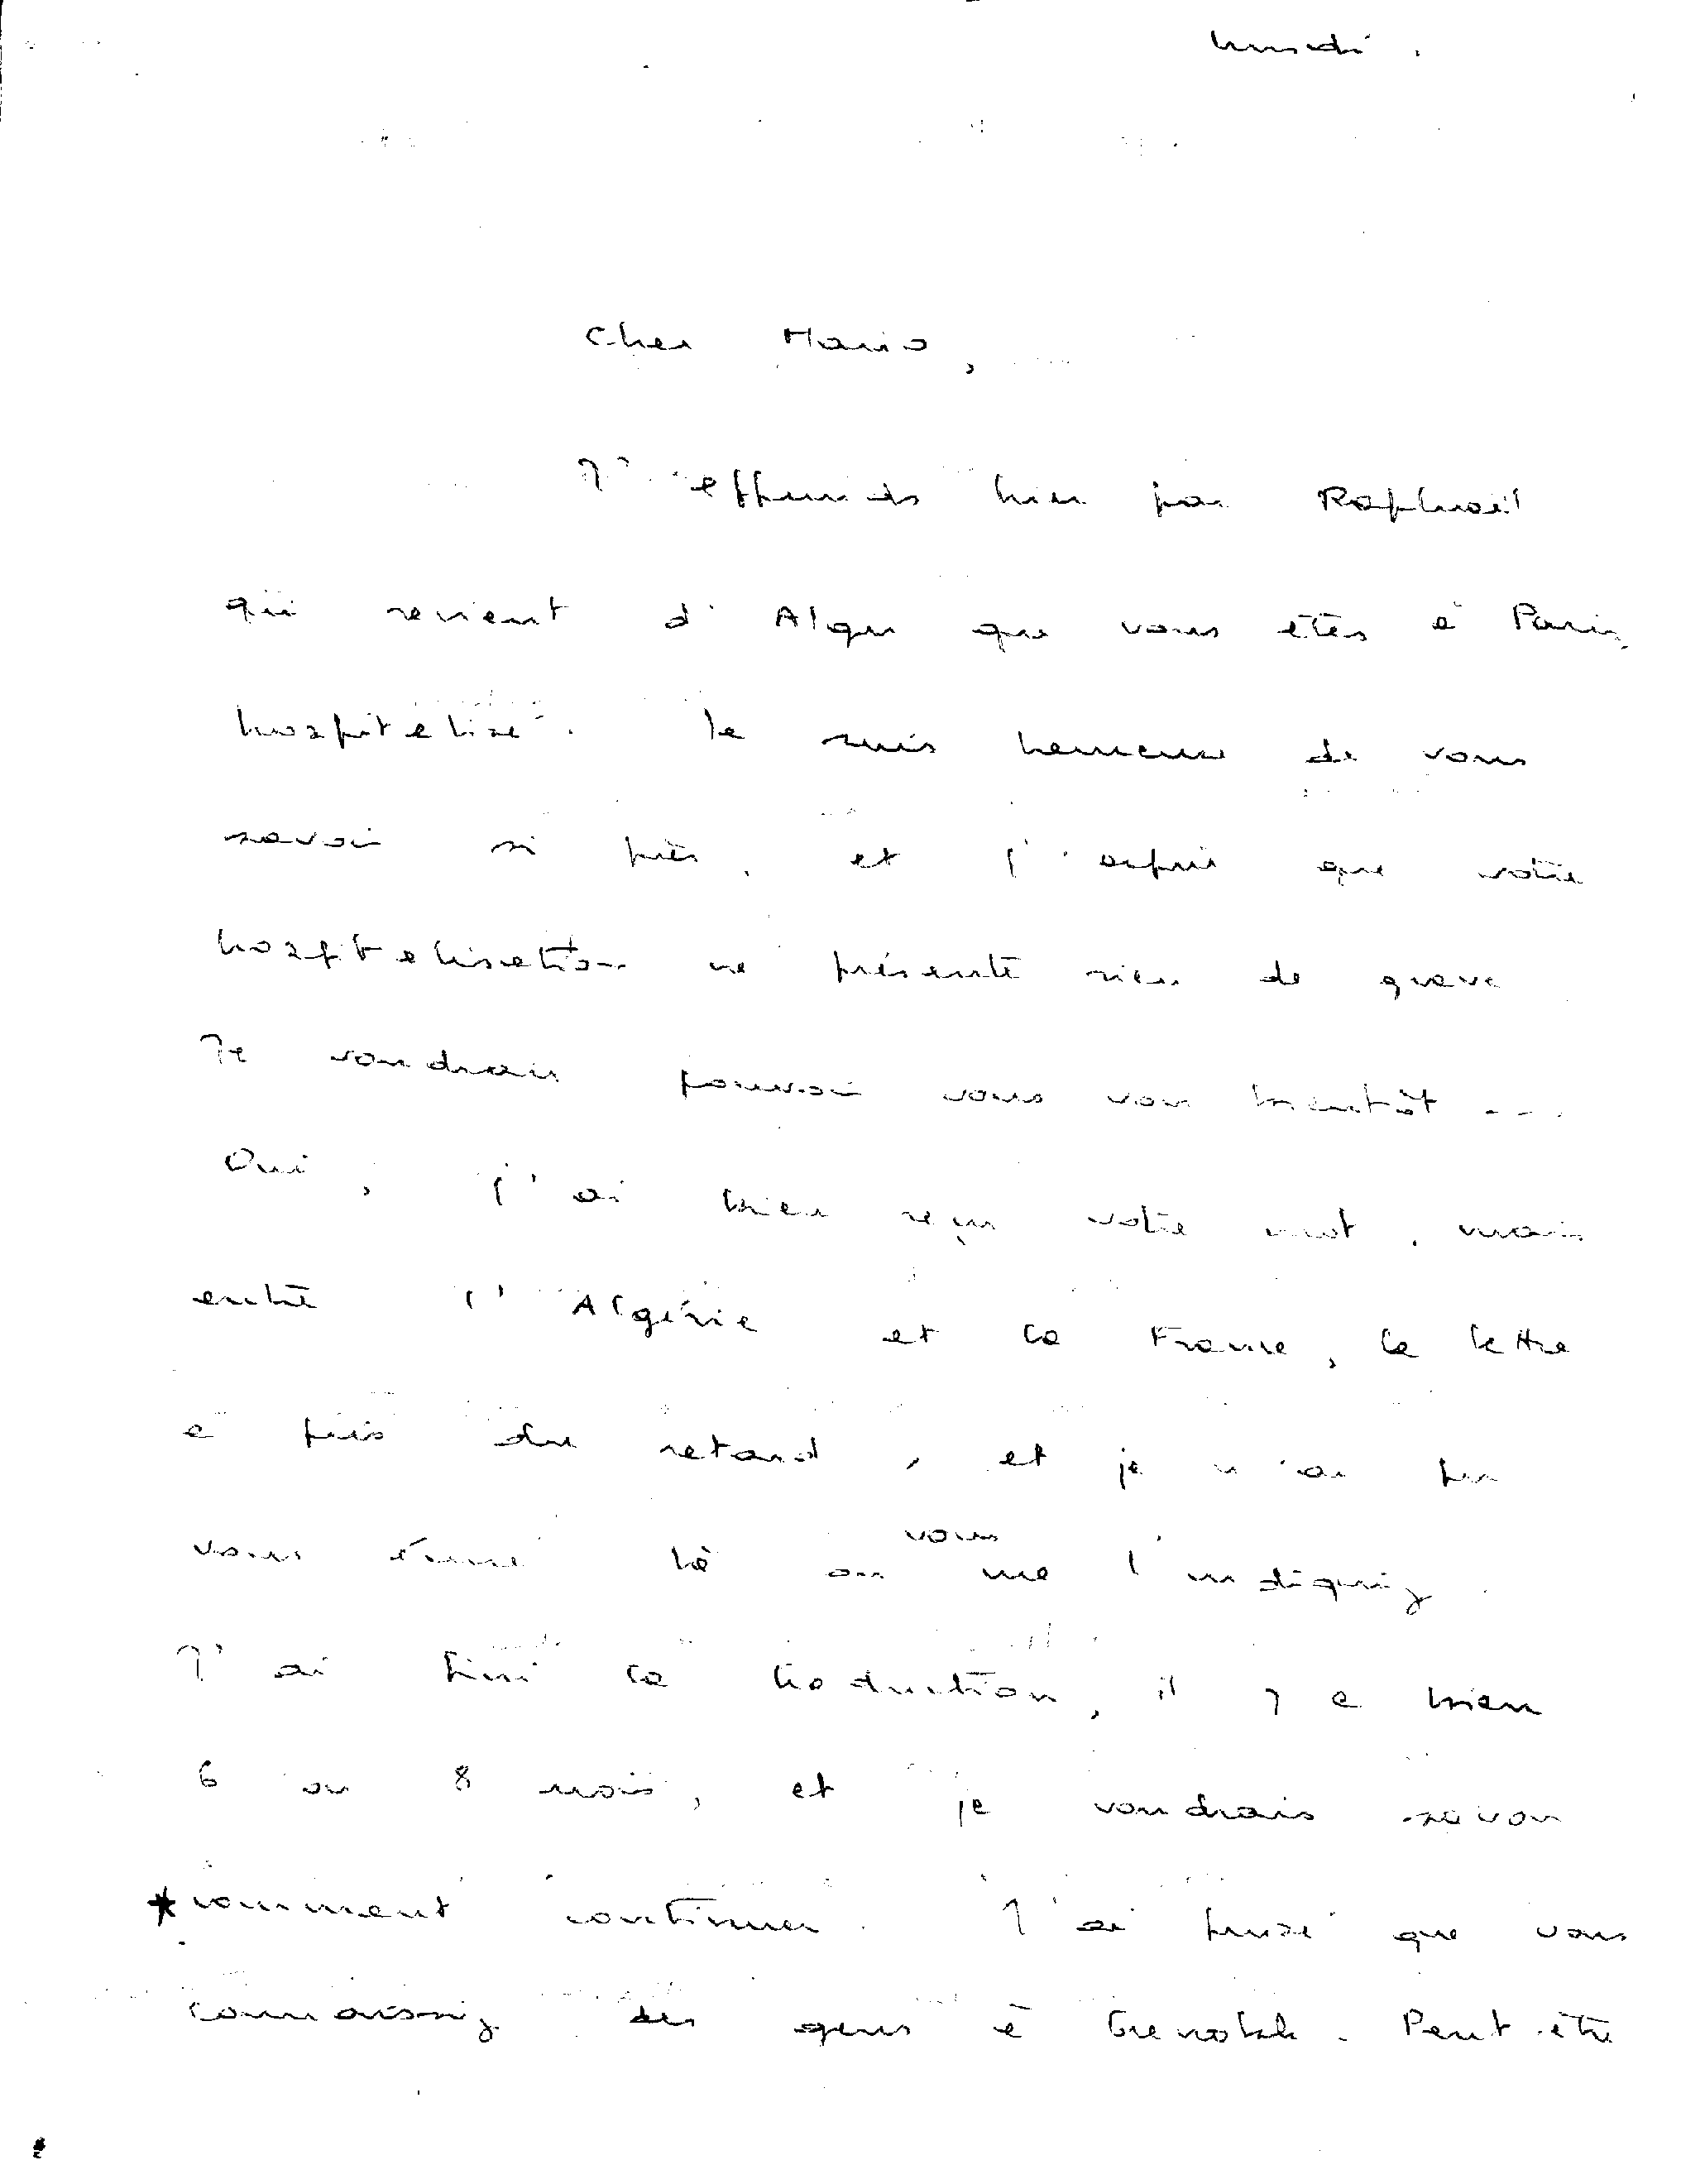 lundi.
Cher Mario,
J'apprends hier par Raphaël
qui revient d'Alger que vous êtes à Paris,
hospitalisé. Je suis heureuse de vous
savoir si près, et j'espère que votre
hospitalisation ne présente rien de grave
Je voudrais pouvoir vous voir bientôt ...
Oui, j'ai bien reçu votre mot, mais
entre l'Algérie et la France, la lettre
a pris du retard, et je n'ai pu
vous écrire là où vous me l'indiquiez.
J'ai fini la traduction, il y a bien
6 ou 8 mois, et je voudrais savoir
comment continuer. J'ai pensé que vous
connaissiez des gens à Grenoble. Peut-être